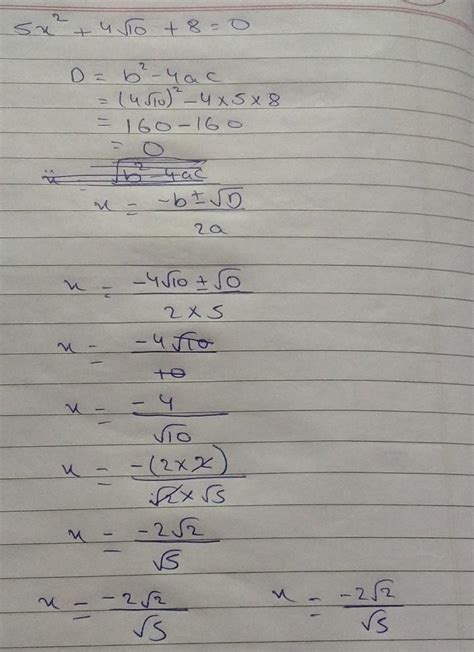 5x² + 4√10 + 8 = 0
D = b² - 4ac
= (4√10)² - 4 x 5 x 8
= 160 - 160
= 0
x √b² - 4ac
x = -b ± √D / 2a
x = -4√10 ± √0 / 2 x 5
x = -4√10 / 10
x = -4 / √10
x = -(2 x 2) / √2 x √5
x = -2√2 / √5
x = -2√2 / √5 x = -2√2 / √5